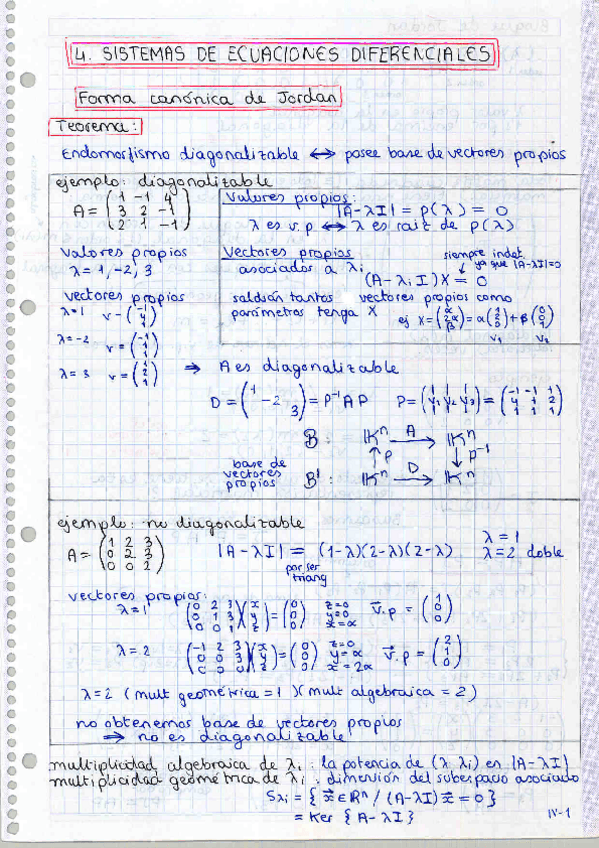 4. SISTEMAS DE ECUACIONES DIFERENCIALES
Forma canónica de Jordan
Teorema:
Endomorfismo diagonalizable ↔ posee base de vectores propios
ejemplo: diagonalizable
A = (1 -1 4
3 2 -1
2 1 -1)
Valores propios:
|A-λI| = p(λ) = 0
λ es v.p ↔ λ es raiz de p(λ)
valores propios
λ = 1, -2, 3
vectores propios
λ=1 v = (-1 4 1)
λ=-2 v = (-1 1 1)
λ=3 v = (1 2 1)
Vectores propios
asociados a λi
siempre indet.
ya que |A-λI|=0
(A-λiI)X = 0
saldrán tantos vectores propios como
parámetros tenga X
ej X = (α 2α β) = α(1 2 0) + β(0 0 1)
v1 v2
⇒ A es diagonalizable
D = (1 -2 3) = P⁻¹AP P = (v1 v2 v3) = (-1 -1 1
4 1 2
1 1 1)
B: IKⁿ A→ IKⁿ
↑P ↓P⁻¹
base de
vectores
propios
B': IKⁿ D→ IKⁿ
ejemplo: no diagonalizable
A = (1 2 3
0 2 3
0 0 2)
|A-λI| = (1-λ)(2-λ)(2-λ)
por ser
triang
λ = 1
λ = 2 doble
vectores propios:
λ=1 (0 2 3
0 1 3
0 0 1)(x y z) = (0 0 0) z=0 y=0 x=α v.p = (1 0 0)
λ=2 (-1 2 3
0 0 3
0 0 0)(x y z) = (0 0 0) z=0 y=α x=2α v.p = (2 1 0)
λ=2 (mult geométrica = 1)(mult algebraica = 2)
no obtenemos base de vectores propios
⇒ no es diagonalizable
multiplicidad algebraica de λi: la potencia de (λ λi) en |A-λI|
multiplicidad geométrica de λi: dimensión del subespacio asociado
Sλi = {x∈Rⁿ / (A-λI)x = 0}
= Ker {A-λI}
IV-1